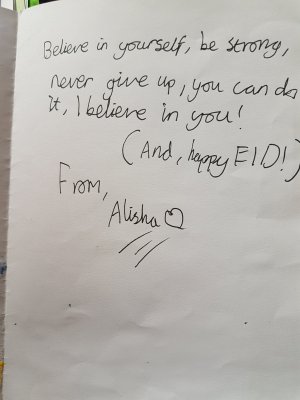 Believe in yourself, be strong,
never give up, you can do
it, I believe in you!
(And, happy EID!)
From,
Alisha